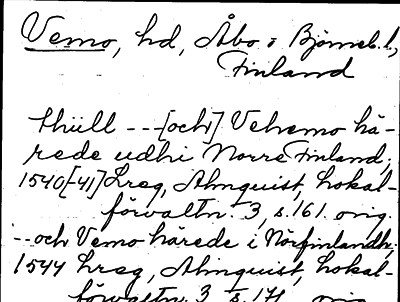 Vemo, hd, Åbo o Björneb. l.,
Finland
thiill --- [och] Vehemo hä-
rede udhi Norre Finland;
1540[-41] Lreg, Almquist, Lokal-
förvaltn. 3, s. 161. orig.
-- och Vemo härede i Nörfinlandh;
1544 Lreg, Almquist, Lokal-
förvaltn. 3 s. 171 orig